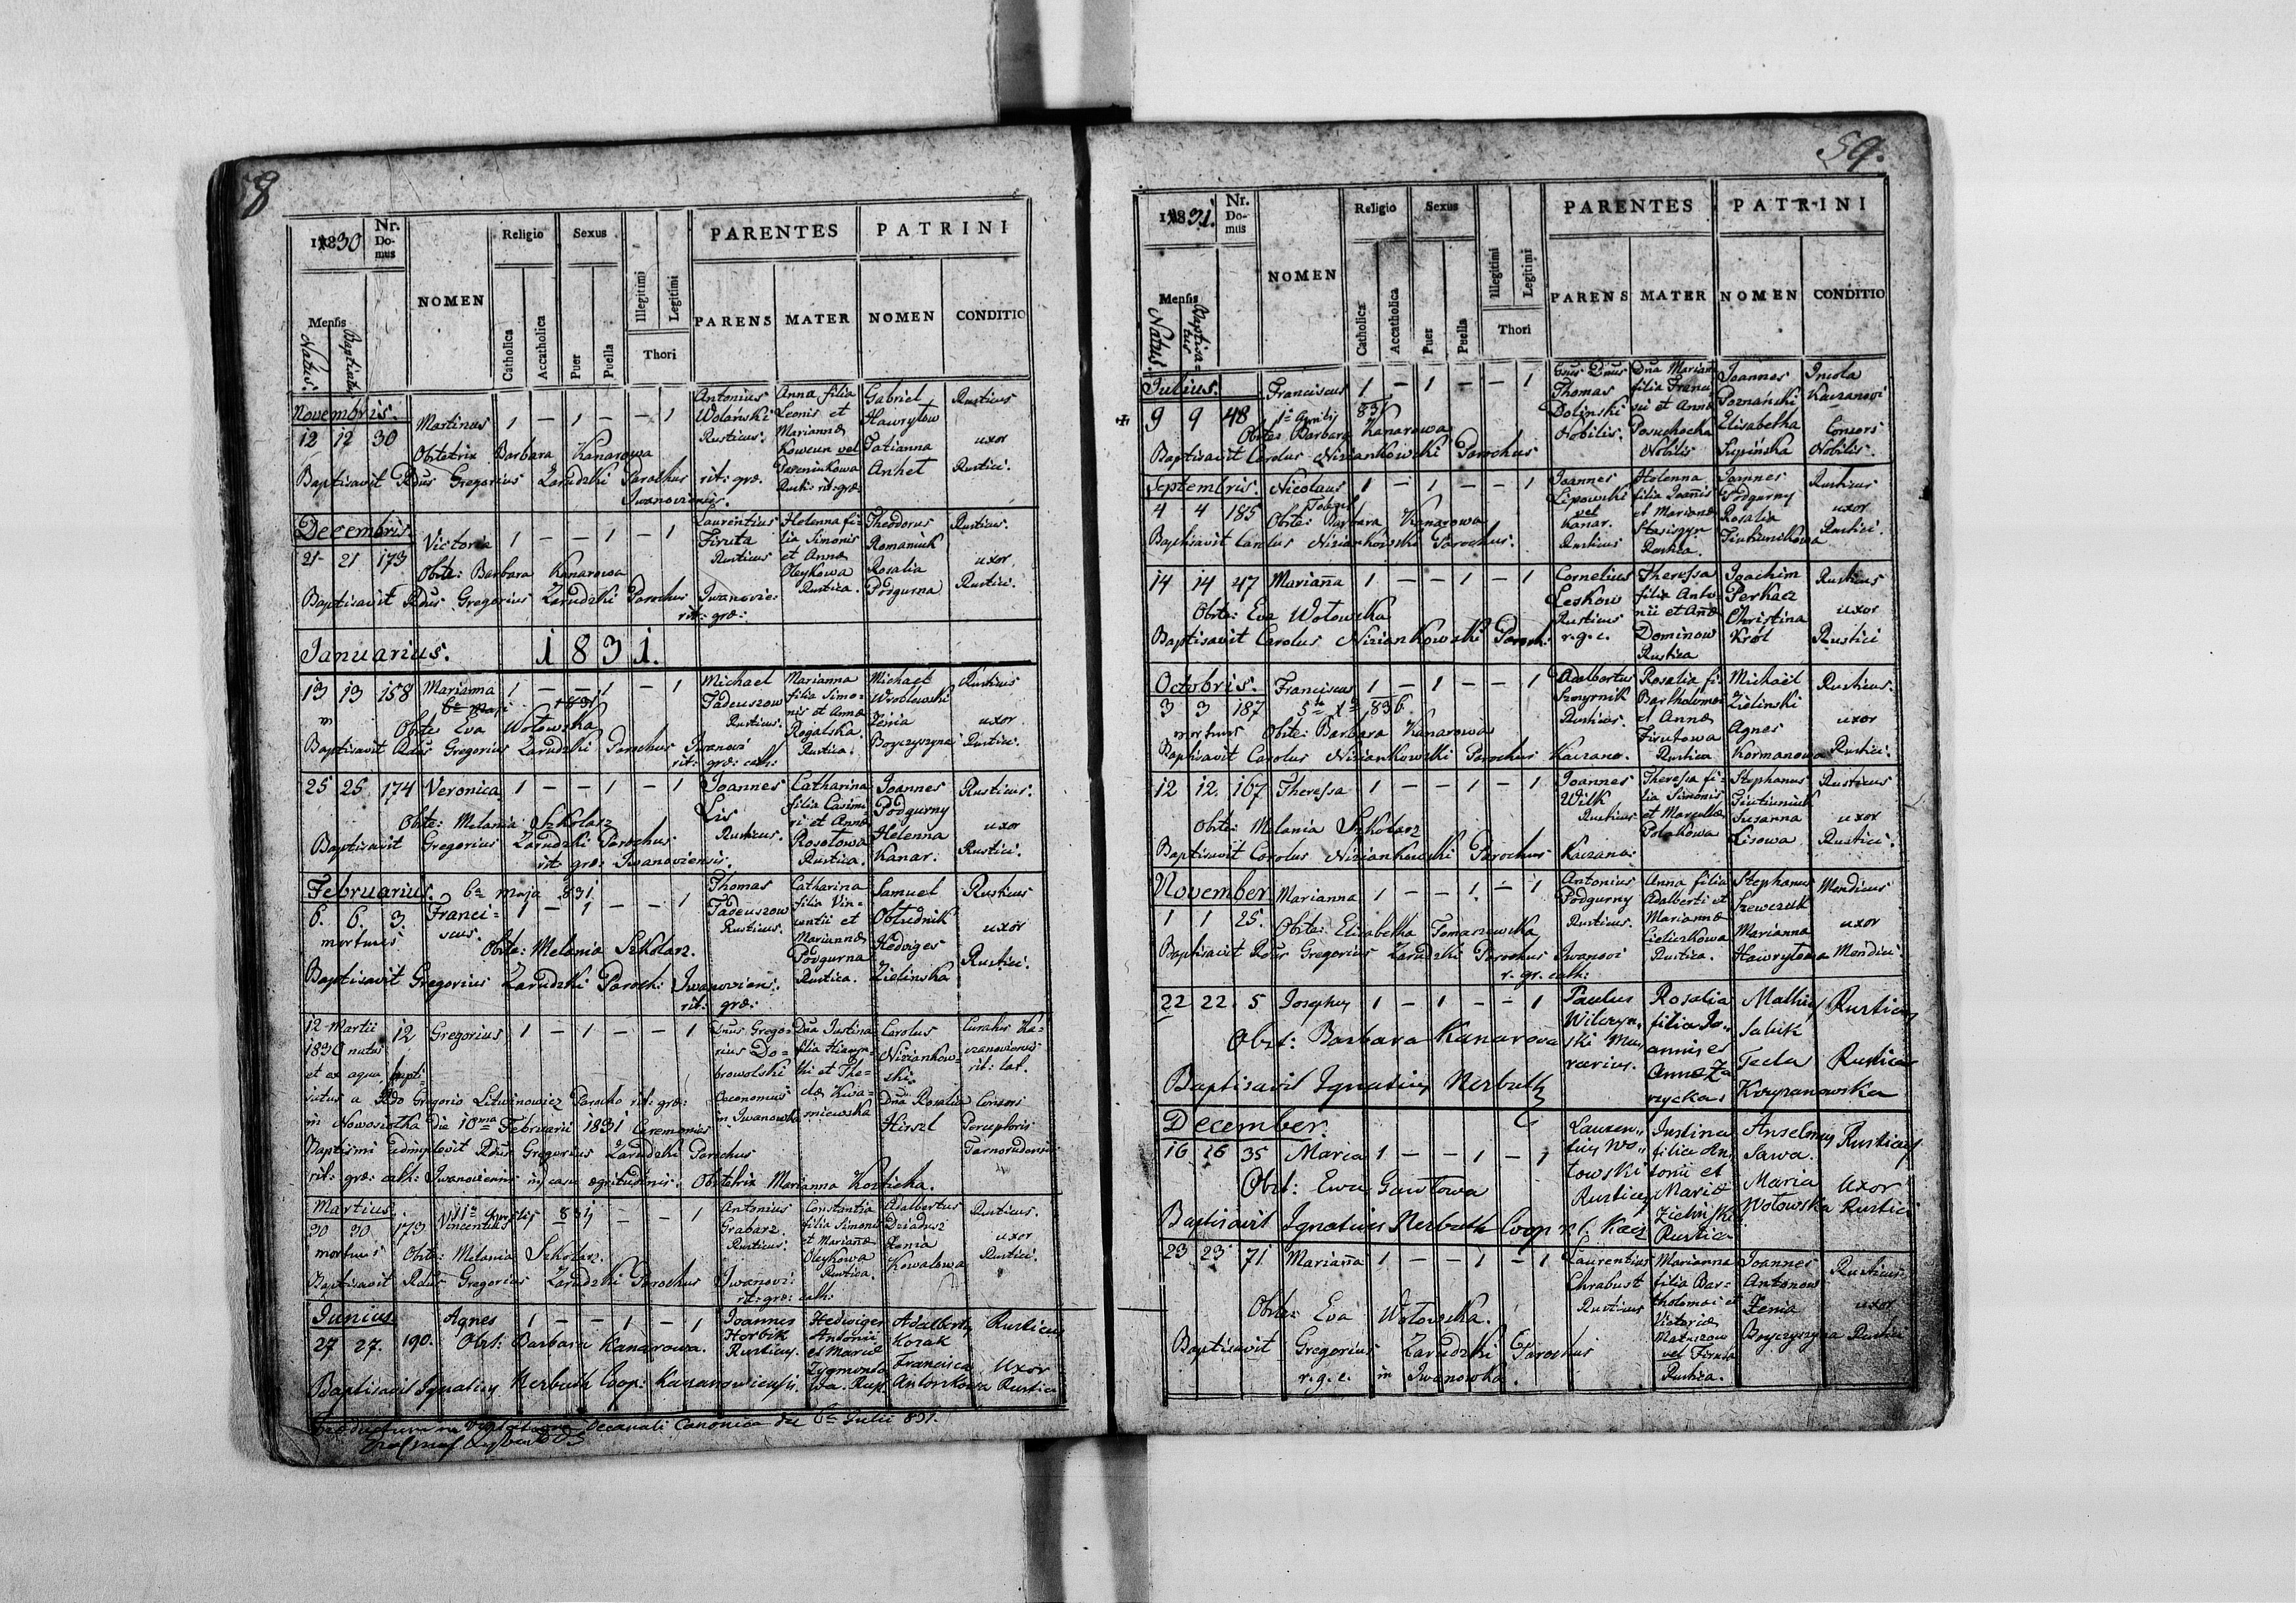 58
1830 Nr. Domus NOMEN Religio Sexus Illegitimi Legitimi PARENTES PATRINI
Mensis Catholica Accatholica Puer Puella Thori PARENS MATER NOMEN CONDITIO
Natus Baptisatus
Novembris.
12 12 30 Martinus 1 – 1 – – 1 Antonius Wolański Rusticus. Anna filia Leonis et Mariannæ Koweur vel Gabriel Hawryłow Rusticus
Tatianna Anhet uxor Rustici.
Obstetrix Barbara Kanarowa
Baptisavit Rdus Gregorius Zarudzki Parochus rit: græ. Iwanoviensis.
Decembris.
21 21 173 Victoria 1 – – 1 – 1 Laurentius Firuta Rusticus Helenna filia Simonis et Annæ Oleykowa Rustica. Theodorus Romaniuk Rusticus.
Rosalia Podgurna uxor Rustici.
Obste: Barbara Kanarowa
Baptisavit Rdus Gregorius Zarudzki Parochus Iwanovie: rit: græ:
Januarius. 1831.
13 13 158 Marianna 1 – – 1 – 1 Michael Tadeuszow Rusticus. Marianna filia Simonis et Annæ Rogalska. Rustica. Michael Wroblewski Rusticus
Xenia Bryczyszyna uxor Rustici.
Obste Eva Wołowska
Baptisavit Rdus Gregorius Zarudzki Parochus Iwanovi rit: græ: cath:
25 25 174 Veronica 1 – – 1 – 1 Joannes Lis Rusticus. Catharina filia Casimiri et Annæ Rosołowa Rustica. Joannes Podgurny Rusticus.
Helenna Kanar. uxor Rustici.
Obste: Melania Szkolarz
Baptisavit Gregorius Zarudzki Parochus rit: græ: Iwanoviensis.
Februarius. 6ta Maja 831
6. 6. 3. Franciscus 1 – 1 – – 1 Thomas Tadeuszow Rusticus. Catharina filia Vincentii et Mariannæ Podgurna Rustica. Samuel Obłudnik Rusticus
Hedviges Zielinska uxor Rustici.
mortuus
Obste: Melania Szkolarz.
Baptisavit Gregorius Zarudzki Paroch: Iwanoviens: rit: græ:
12 Martii 12 Gregorius 1 – 1 – – 1 Dnus Gregorius Dobrowolski Oeconomus in Iwanowka Dna Justina filia
1830 natus
et ex aqua baptisatus a Rdo Gregorio Litwinowicz Parocho rit: græ:
Carolus Niziankowski Curatus Kaczanoviensis rit: lat.
Dna Rosalia Hirszl Consors Perceptoris Tarnorudensis
in Nowosiołka die 10ma Februarii 1831 Ceremonias
Baptismi Adimplevit Rdus Gregorius Zarudzki Parochus
rit: græ: cath: Iwanoviensis in casu ægritudinis. Obstetrix Marianna Kozticha.
Martius.
30 30 173 Vincentius – – 1 Antonius Grabarz Rusticus. Constantia filia Simonis et Mariannæ Oleykowa Rustica. Adalbertus Dziadusz Rusticus.
Xenia Kowalowa uxor Rustici.
mortuus Obste: Melania Szkolarz.
Baptisavit Rdus Gregorius Zarudzki Parochus Iwanovi: rit: græ: cath:
Junius
27 27. 190. Agnes 1 – – 1 – 1 Joannes Horbik Rusticus. Hedviges Antonii et Mariæ Zygmuntowa. Rust. Adalbertus Kozak Rusticus
Francisca Antonkowa Uxor Rustici
Obst: Barbara Kanarowa.
Baptisavit Ignatius Nerbuth Coop: Kaczanoviensis.
Decanali Canonica die 6ta Julii 831.
59.
1831. Nr. Domus NOMEN Religio Sexus Illegitimi Legitimi PARENTES PATRINI
Mensis Catholica Accatholica Puer Puella Thori PARENS MATER NOMEN CONDITIO
Natus. Baptisatus
Julius.
9 9 48 Franciscus 1 – 1 – – 1 Gnus Dnus Thomas Dolinski Nobilis. Dna Marianna filia Francisci et Annæ Posuchocka Nobilis Joannes Poznański Incola Kaczanovi
Elisabetha Lipińska Consors Nobilis.
1a Aprilis 831
Obste: Barbara Kanarowa
Baptisavit Carolus Niziankowski Parochus
Septembris.
4 4 185 Nicolaus 1 – 1 – – 1 Joannes Lipowski vel Kanar. Rusticus Helenna filia Joannis et Mariannæ Stasiszyn Rustica. Joannes Podgurny Rusticus
Rosalia uxor Rustici.
Obste: Barbara Kanarowa
Baptisavit Carolus Niziankowski Parochus.
14 14 47 Marianna 1 – – 1 – 1 Cornelius Leskow Rusticus r. g. c. Theressa filia Antonii et Annæ Dominow Rustica Joachim Perkacz Rusticus
Christina Król uxor Rustici
Obste: Eva Wołowska
Baptisavit Carolus Niziankowski Paroch:
Octobris.
3 3 187 Franciscus 1 – 1 – – 1 Adalbertus Szmyrnik Rusticus. Rosalia filia Bartholomæi et Annæ Firutowa Rustica Michaël Zielinski Rusticus.
Agnes Kormanowa uxor Rustici.
mortuus Obste: Barbara Kanarowa
Baptisavit Carolus Niziankowski Parochus Kaczano.
12 12. 167 Theressa 1 – – 1 – 1 Joannes Wilk Rusticus Theressa filia Simonis et Marcellæ Polakowa Stephanus Rusticus
Susanna Lisowa uxor Rustici.
Obste: Melania Szkolarz
Baptisavit Carolus Niziankowski Parochus Kaczano:
November
1 1 25. Marianna 1 – – 1 – 1 Antonius Podgurny Rusticus. Anna filia Adalberti et Mariannæ Rustica. Stephanus Szewczuk Mendicus
Marianna Hawryłowa uxor Mendici.
Obste: Elisabetha Tomaszewska
Baptisavit Rdus Gregorius Zarudzki Parochus Iwanovi r. gr. cath:
22 22 5 Josephus 1 – 1 – – 1 Paulus Rosalia filia Joannis et Annæ Mathias Salik Rusticus
Tecla Krzyzanowska Rustica
Obst: Barbara Kanarowa
Baptisavit Ignatius Nerbuth
December.
16 16 35 Maria 1 – – 1 – 1 Laurentius Wołowski Rusticus Justina filia Antonii et Mariæ Zielinski Rustica Anselmus Sawa. Rusticus
Maria Wołowska Uxor Rustici
Obst: Ewa Gawłowa
Baptisavit Ignatius Nerbuth Coop r. l. Kacz
23 23 71. Marianna 1 – – 1 – 1 Laurentius Chrabust Rusticus Marianna filia Bartholomæi et Victoriæ Matuszow vel Firuta Rustica. Joannes Antonow Rusticus.
Xenia Bryczyszyna uxor Rustici
Obste: Eva Wołowska.
Baptisavit Gregorius Zarudzki Parochus
r. g. c. in Iwanowka.